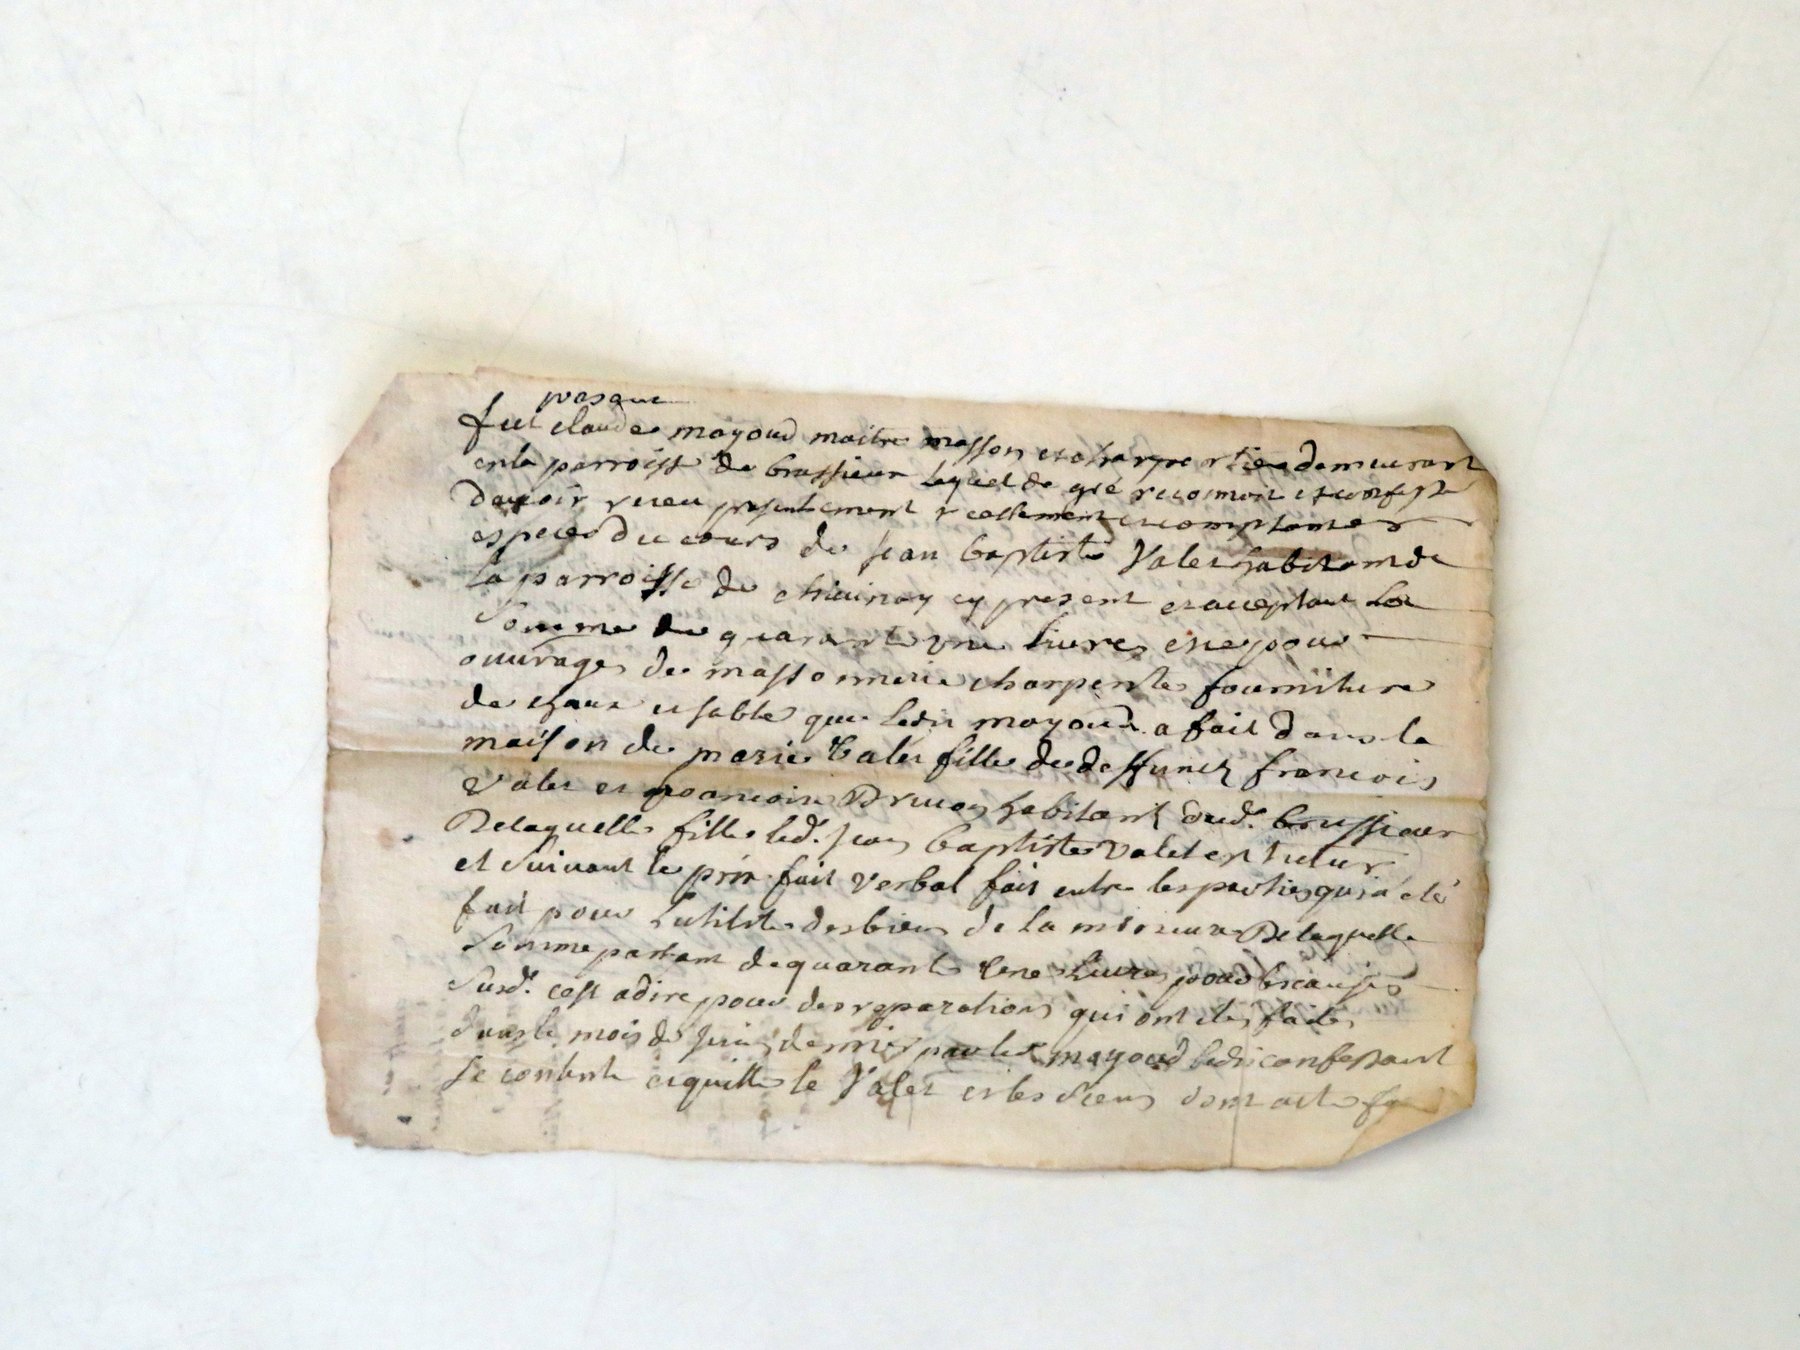 fut claude mayoud maitre masson et charpentier demeurant
en la parroisse de brussieux lequel de gré reconnoit et confesse
davoir receu presentement reellement et comptant en
especes du cours de jean baptiste Valet habitant de
la parroisse de cy present et acceptant la
Somme de quarante une livres et ce pour
ouvrages de massonnerie charpente fourniture
de chaux et sable que ledit mayoud a fait dans la
maison de marie Valet fille de deffunct francois
Valet et habitant dud. brussieux
De laquelle fille led. jean baptiste Valet est tuteur
et Suivant le prix fait verbal fait entre les parties qui a eté
fait pour Lutilité des biens de la mineure De laquelle
Somme partant de quarante une livres pour les causes
Susd. cest a dire pour des reparations qui ont étés faites
dans le mois de dernier par led. mayoud ledit confessant
Se contente et quitte le Valet et les siens dont acte